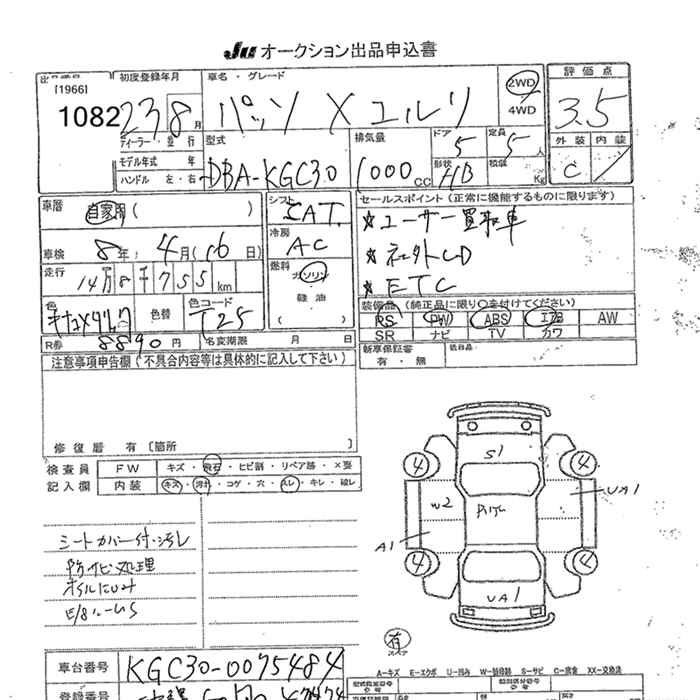 JU オークション出品申込書
出品番号 初度登録年月 車名・グレード 2WD 評価点
[1966]
1082 23 8月 パッソ X ユルリ 4WD 3.5
ディーラー・並行 型式 排気量 ドア 定員 外装 内装
モデル年式 年 5 5人
ハンドル 左・右 DBA-KGC30 1000cc 形状 HB 積載 Kg C
車歴 自家用 ( ) シフト CAT. セールスポイント (正常に機能するものに限ります)
冷房 AC ★ユーザー買取車
車検 8年 4月(16日) ★社外CD
走行 14万8千755km 燃料 ガソリン ★ETC
軽油
色 色替 色コード T25 ( ) 装備品 (純正品に限り○を付けてください)
RS PW ABS エアB AW
SR ナビ TV カワ
R券 8890円 名変期限 月 日 新車保証書 後日品
有・無
注意事項申告欄 (不具合内容等は具体的に記入して下さい)
修復歴 有 [箇所 ]
検査員 FW キズ・飛石・ヒビ割・リペア跡・×要
記入欄 内装 キズ・汚れ・コゲ・穴・スレ・キレ・破レ
S1
4 4
W2 UA1
A1
4 4
UA1
シートカバー付・汚レ
防サビ処理
オイルにじみ
有
スペア
車台番号 KGC30-0075484
A-キズ E-エクボ U-凹み W-板金跡 S-サビ C-腐食 XX-交換済
登録番号 型式指定番号 類別区分番号